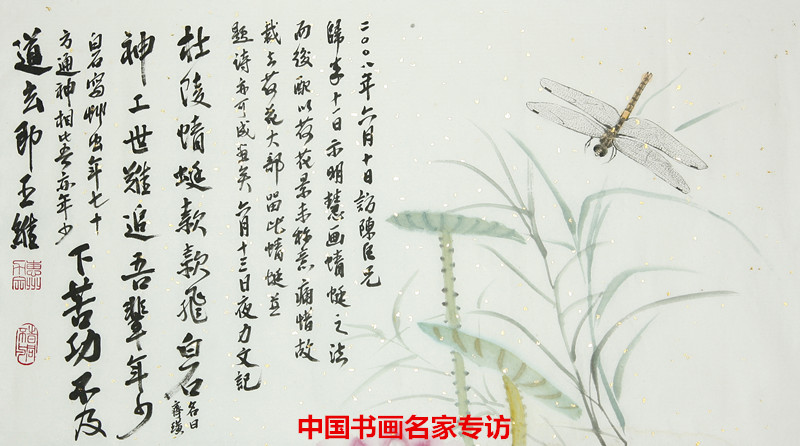 二〇〇八年六月十日訪陳兄
歸来十一日示明慧画蜻蜓之法
而後配以荷花景未称意痛惜故
裁去荷花大部留此蜻蜓並
题诗亦可成画矣 六月十三日夜力文記
杜陵蜻蜓款款飛白石
名曰
齊璜
神工世難追吾輩年少
白石寫艸虫年七十
方通神相比吾亦年少
下苦功不及
道玄即王維
中国书画名家专访